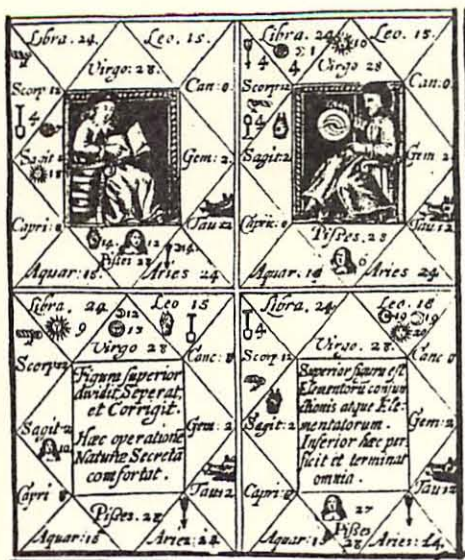 Libra. 24. Leo. 15.
Virgo: 28.
Scorp 12 Can: 0.
4
Sagit Gem: 2.
18
Capri: Tau: 12
14. 12 14.
Pisces 28
Aquar: 18. Aries 24
Libra. 24. Leo. 15.
1 10
4
Virgo 28
Scorp: 12 Can: 0.
4
Sagit: 2 Gem 2
Capric: Tau: 12
Pisses. 28
6
Aquar. Aries 24
Libra. 24 Leo 15
9 12
13
Virgo 28
Scorp: 12 Canc:
Sagit: 2 Gem: 2
Capri Tau: 12
Pisses. 28
Aquar: 18 Aries: 24
Figura superior
dividit, Seperat,
et Corrigit.
Hæc operationẽ
Naturæ Secretã
comfortat.
Libra. 24 Leo. 18
4 19
Virgo. 28.
Scorp 12 Canc
Sagit: 2 Gem: 2
Capri: Tau: 12
27
Pisses
28
Aquar: Aries:
Superior figura est
Elementorũ coniun
ctionis atque Ele-
mentatorum.
Inferior hæc per
ficit et terminat
omnia.